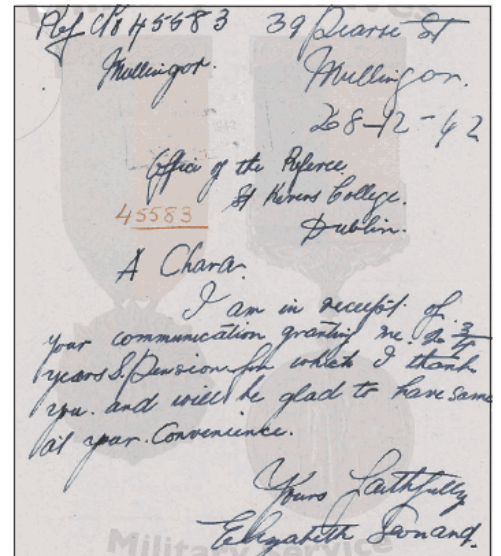 Ref No 45583 39 Pearse St
Mullingar. Mullingar.
28-12-42
Office of the Referee
45583 St Kevins College.
Dublin.
A Chara.
I am in receipt of.
your communication granting me. 2 3/4
years S. Pension for which I thank
you. and will be glad to have same
at your. Convenience.
Yours Faithfully
Elizabeth
Military Service